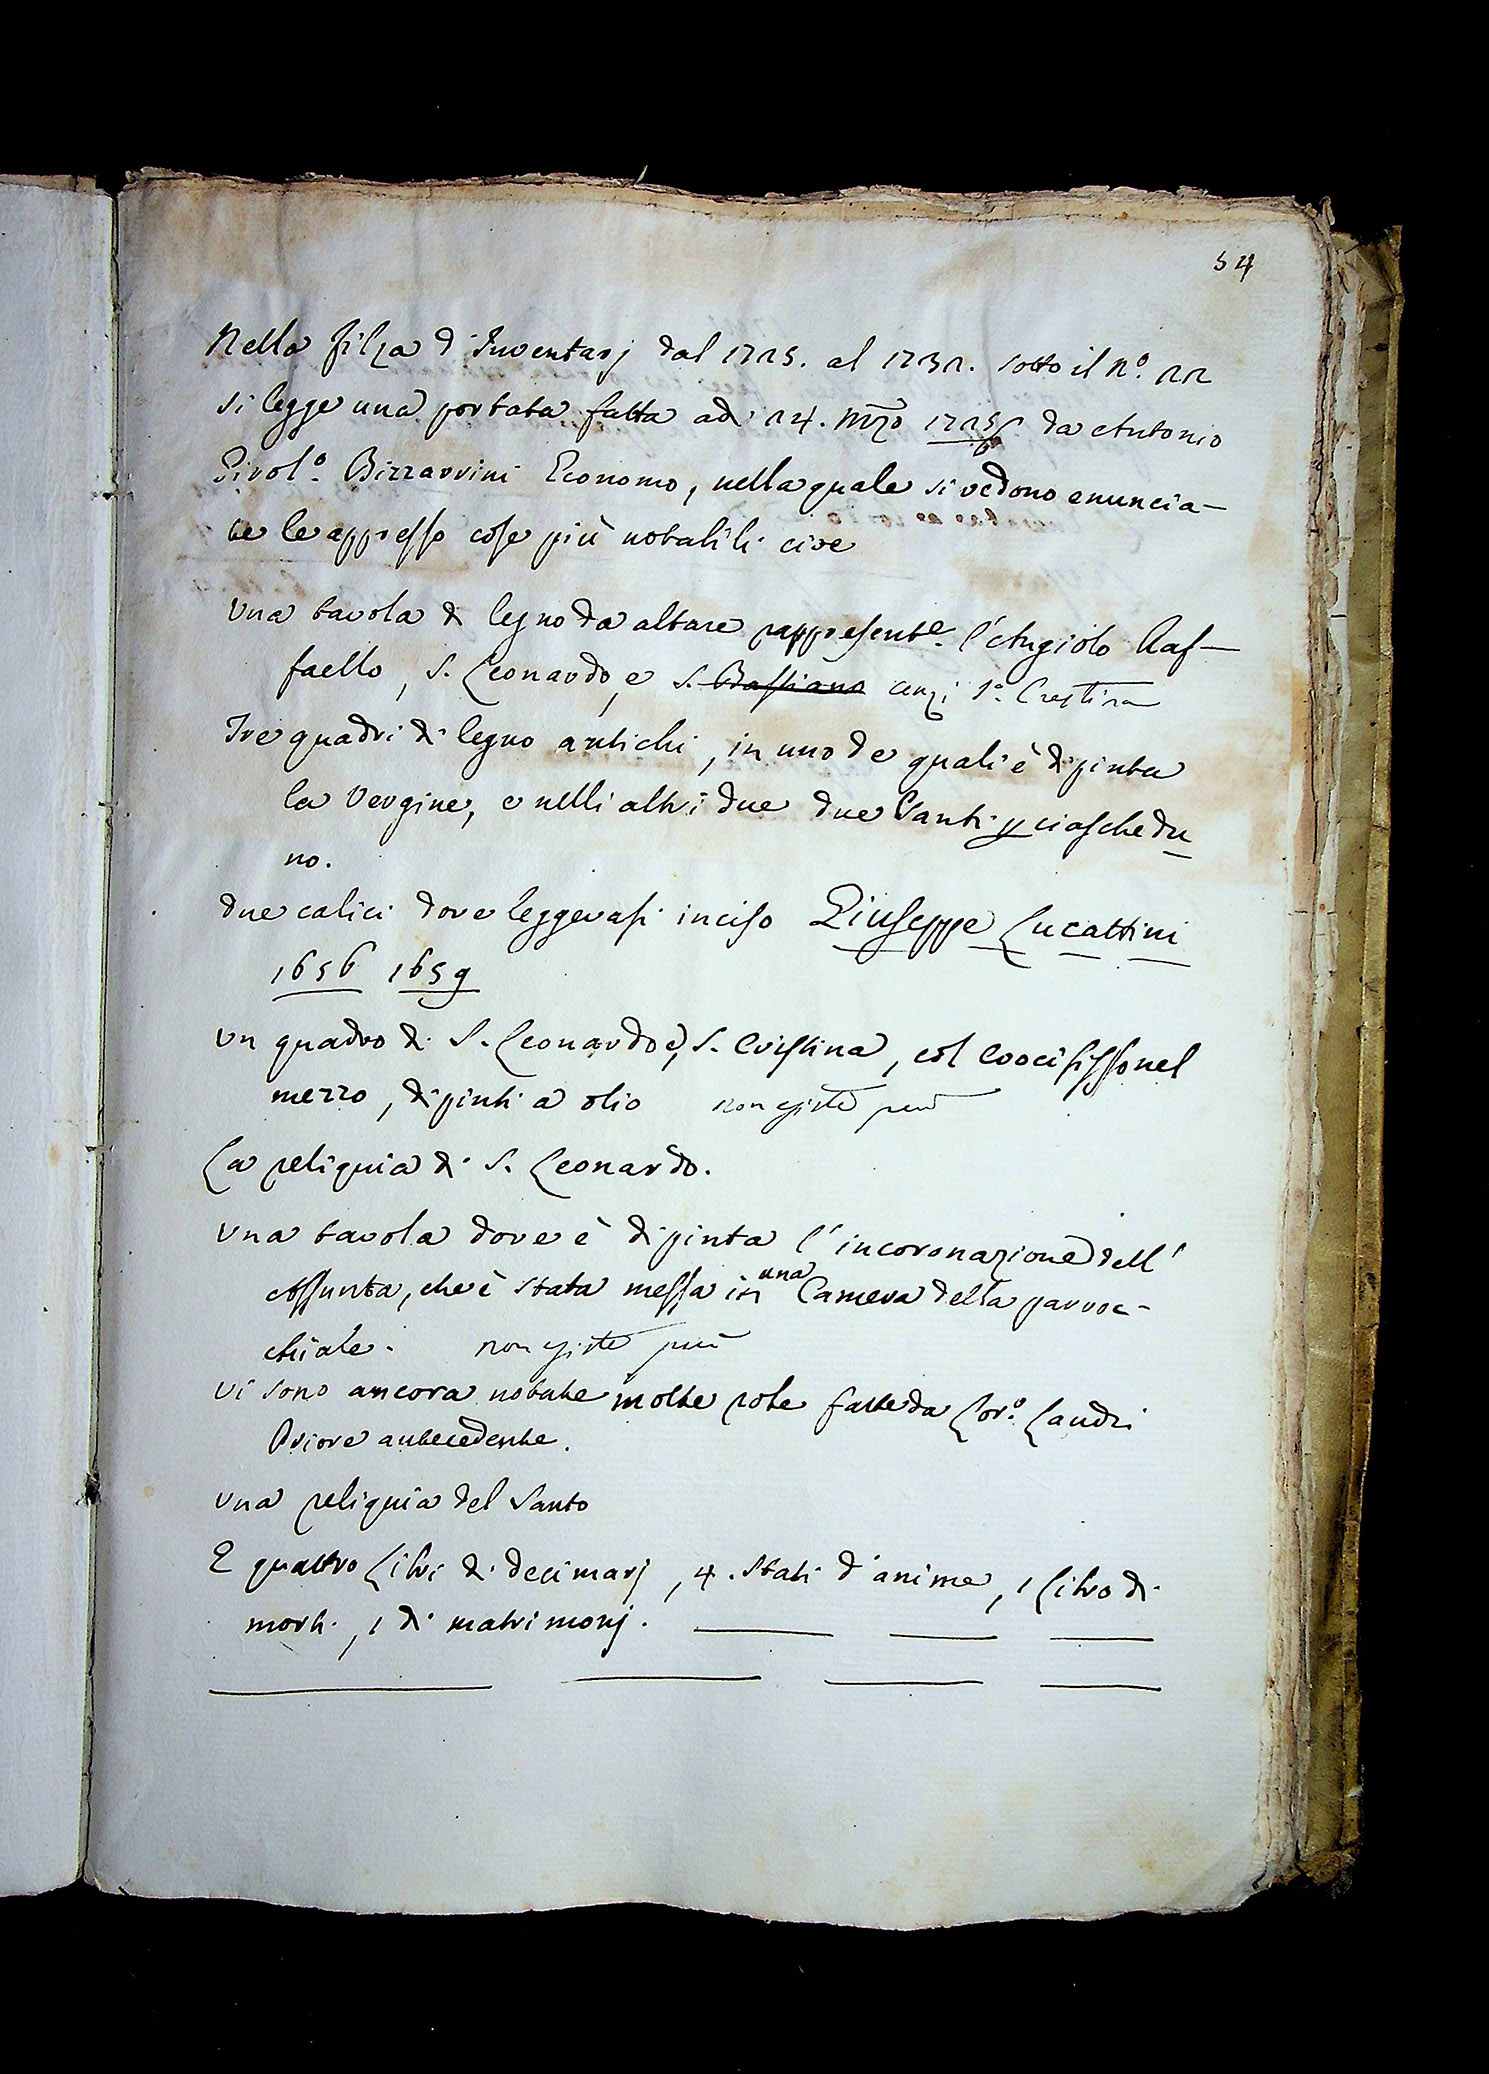 54
Nella filza d'Inventarj dal 1725. al 1732. sotto il N.º 22
si legge una portata fatta adì 24. Mzo 1725/6 da Antonio
Girol.º Bizzarrini Economo, nella quale si vedono enuncia-
te le appresso cose più notabili cioe
Una tavola di legno da altare rappresent.e l'Angiolo Raf-
faello, S. Leonardo, e S. Bastiano anzi S.a Crestina
Tre quadri di legno antichi, in uno de quali è dipinta
la Vergine, e nelli altri due due Santi p ciaschedu
no.
due calici dove leggevasi inciso Giuseppe Lucattini
1656 1659
Un quadro di S. Leonardo e, S. Cristina, col Crocifisso nel
mezzo, dipinti a olio non esiste più
La reliquia di S. Leonardo.
Una tavola dove è dipinta l'incoronazione dell'
Assunta, che è stata messa in una Camera della parroc-
chiale. non esiste più
Vi sono ancora notate molte robe fatte da Lor.º Landi
Priore antecedente.
Una reliquia del Santo
E quattro Libri di decimarj, 4. Stati d'anime, 1 Libro di
morti, 1 di matrimonj.